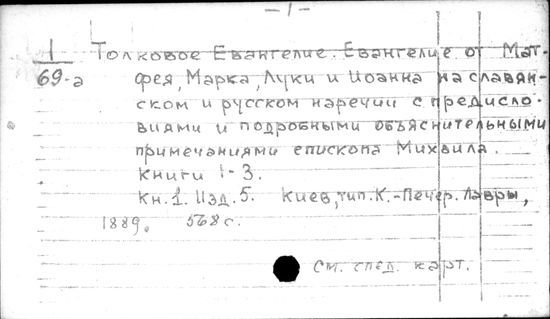 -1-
1
69-а
Толковое Евангелие. Евангелие от Мат-
фея, Марка, Луки и Иоанна на славян-
ском и русском наречии с предисло-
виями и подробными объяснительными
примечаниями епископа Михаила.
Книги 1-3.
Кн.1. Изд.5. Киев, тип. К.-Печер. Лавры,
1889. 568 с.
См. след. карт.